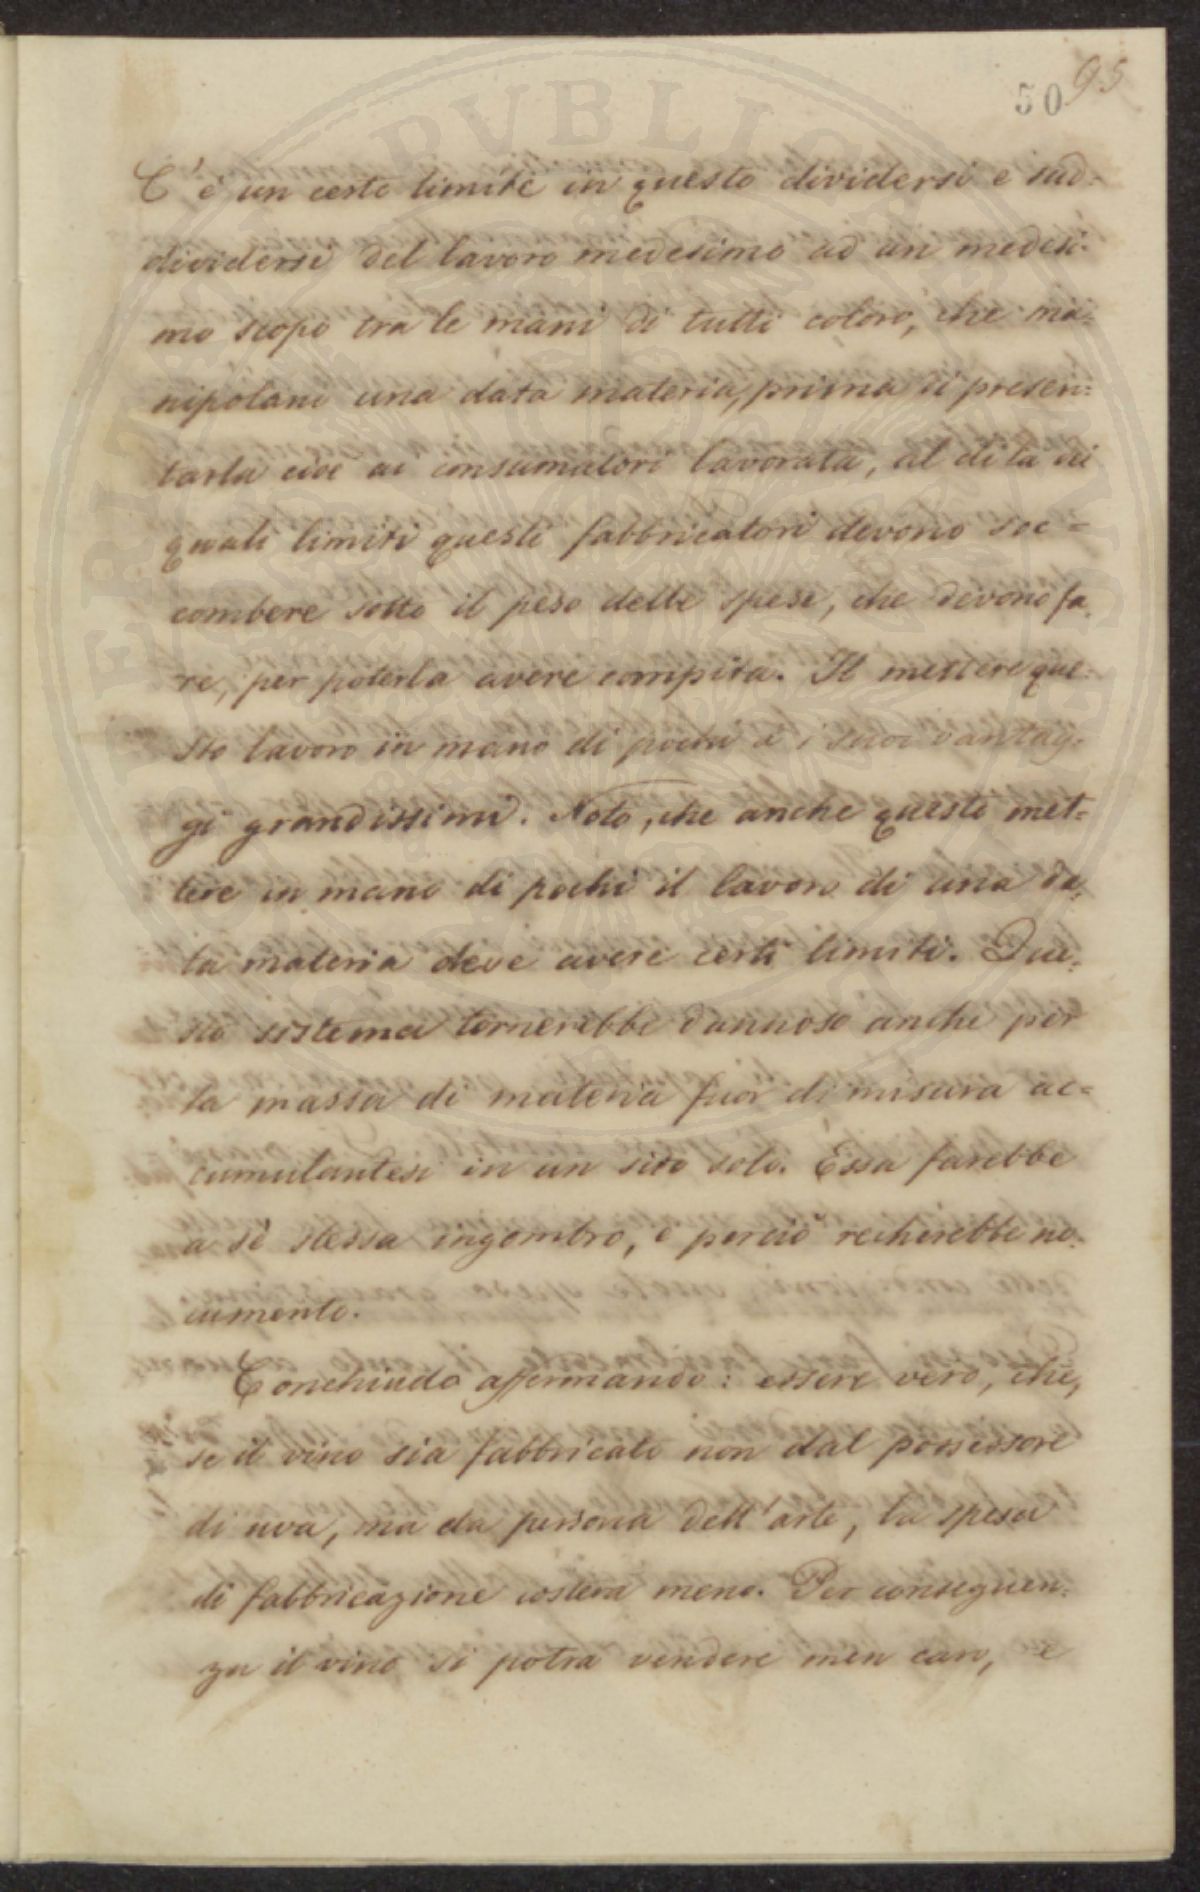 50 95
C'è un certo limite in questo dividersi e sud=
dividersi del lavoro medesimo ad un medesi=
mo scopo tra le mani di tutti coloro, che ma=
nipolano una data materia, prima di presen=
tarla cioè ai consumatori lavorata, al di la dei
quali limiti questi fabbricatori devono soc=
combere sotto il peso delle spese, che devono fa=
re, per poterla avere compita. Il mettere que=
sto lavoro in mano di pochi à i suoi vantag=
gi grandissimi. Noto, che anche questo met=
tere in mano di pochi il lavoro di una da=
ta materia deve avere certi limiti. Que=
sto sistema tornerebbe dannoso anche per
la massa di materia fuor di misura ac=
cumulantesi in un sito solo. Essa farebbe
a sè stessa ingombro, e perciò recherebbe no=
cumento.
Conchiudo affermando: essere vero, che,
se il vino sia fabbricato non dal possessore
di uva, ma da persona dell'arte, la spesa
di fabbricazione costera meno. Per conseguen=
za il vino si potra vendere men caro, e